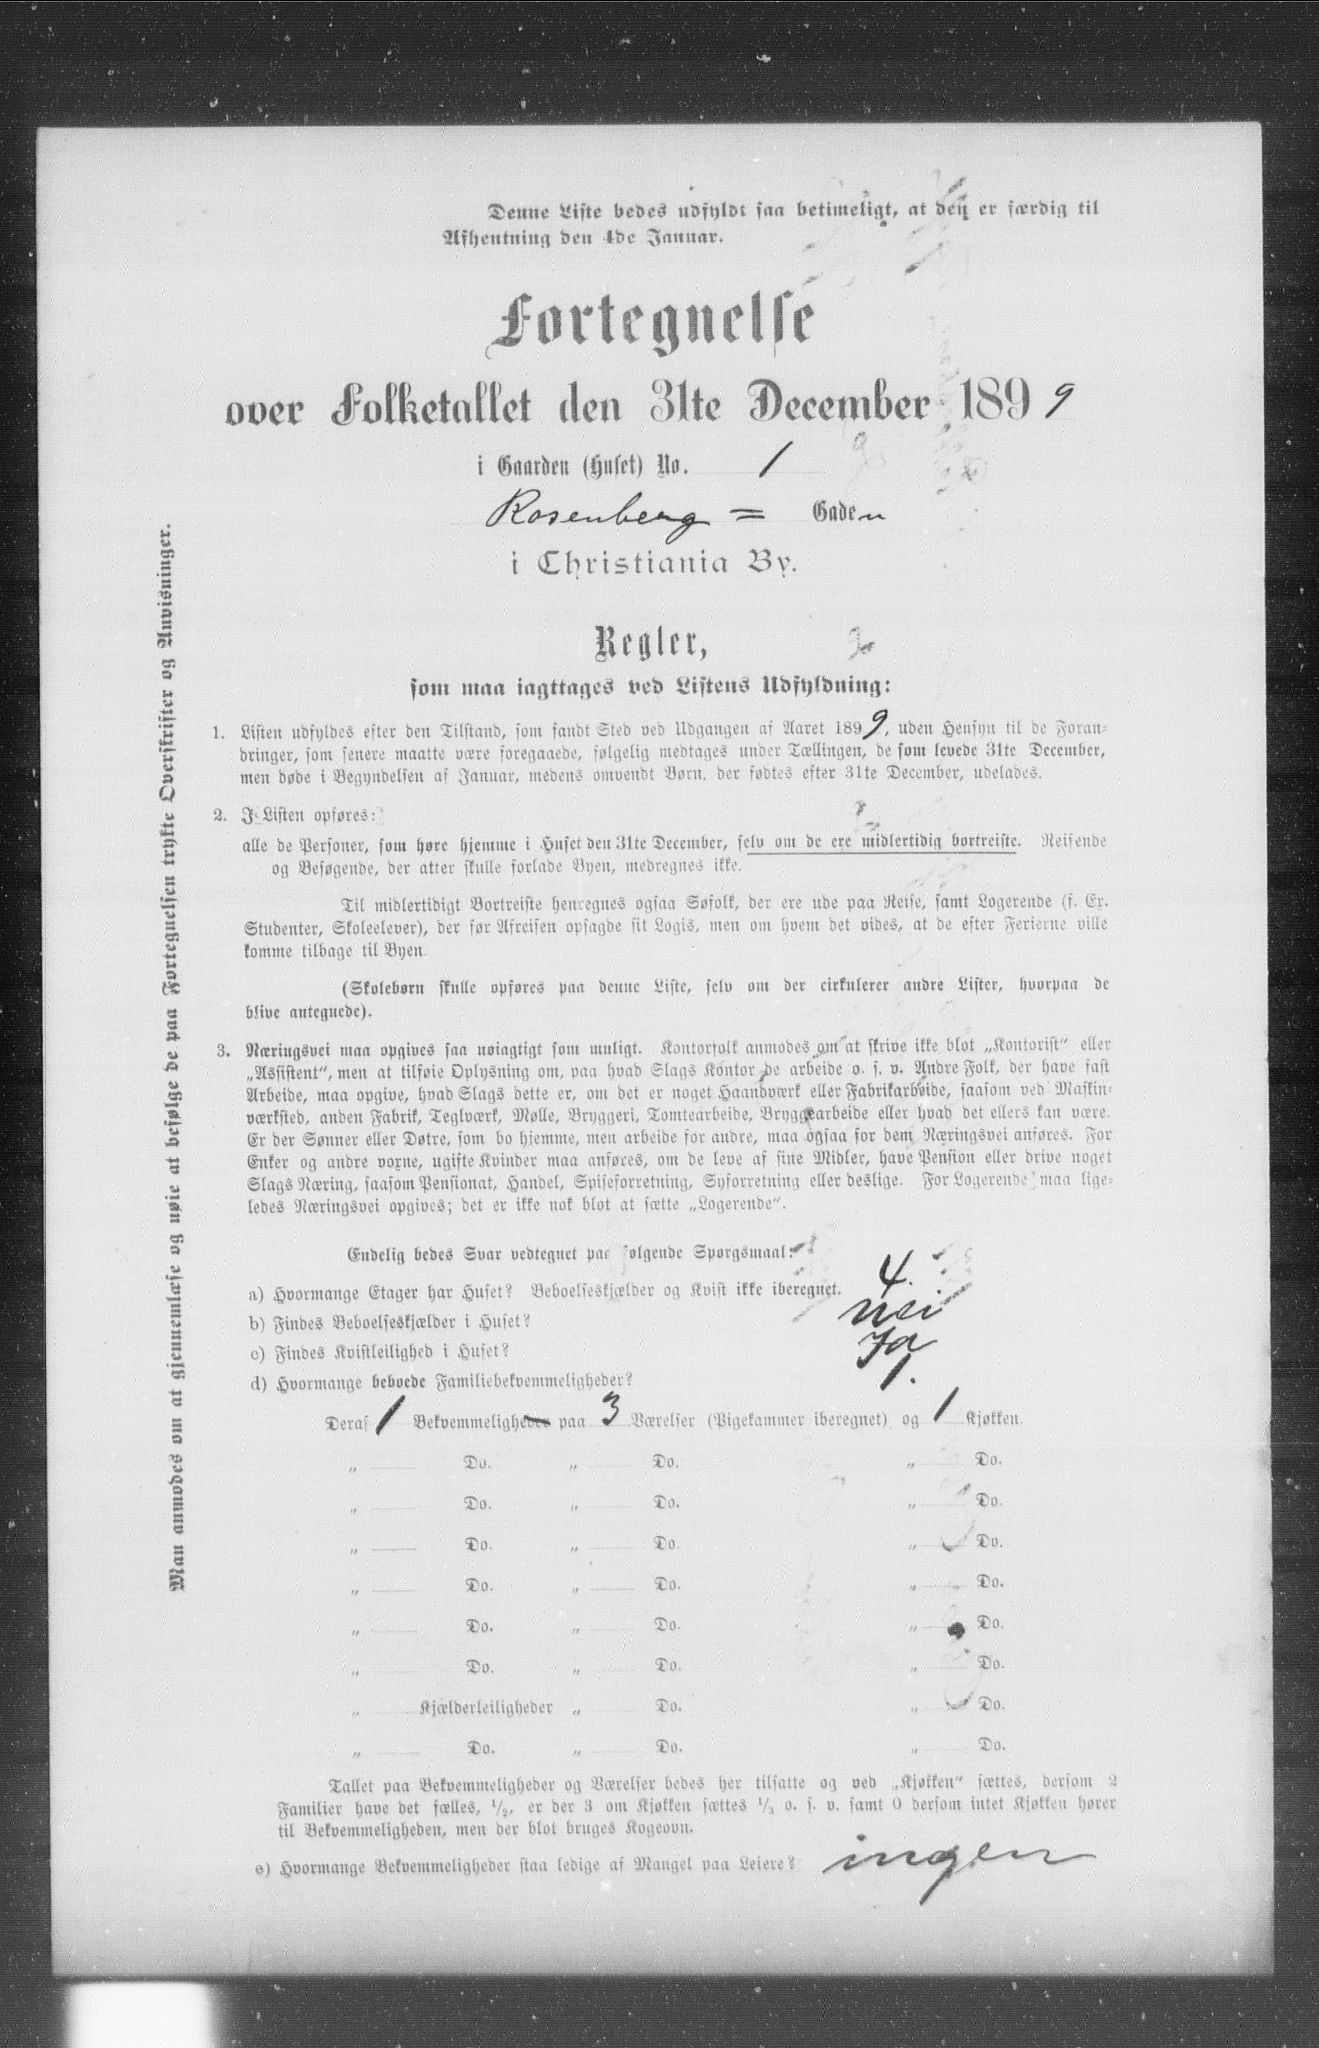 Denne Liste bedes udfyldt saa betimeligt, at den er færdig til
Afhentning den 4de Januar.
Fortegnelse
over Folketallet den 31te December 1899
i Gaarden (Huset) No. 1
Rosenberg = Gaden
i Christiania By.
Regler,
som maa iagttages ved Listens Udfyldning:
1. Listen udfyldes efter den Tilstand, som fandt Sted ved Udgangen af Aaret 1899, uden Hensyn til de Foran-
dringer, som senere maatte være foregaaede, følgelig medtages under Tællingen, de som levede 31te December,
men døde i Begyndelsen af Januar, medens omvendt Børn, der fødtes efter 31te December, udelades.
2. I Listen opføres:
alle de Personer, som høre hjemme i Huset den 31te December, selv om de ere midlertidig bortreiste. Reisende
og Besøgende, der atter skulle forlade Byen, medregnes ikke.
Til midlertidigt Bortreiste henregnes ogsaa Søfolk, der ere ude paa Reise, samt Logerende (f. Ex.
Studenter, Skoleelever), der før Afreisen opsagde sit Logis, men om hvem det vides, at de efter Ferierne ville
komme tilbage til Byen.
(Skolebørn skulle opføres paa denne Liste, selv om der cirkulerer andre Lister, hvorpaa de
blive antegnede).
3. Næringsvei maa opgives saa nøiagtigt som muligt. Kontorfolk anmodes om at skrive ikke blot „Kontorist“ eller
„Assistent“, men at tilføie Oplysning om, paa hvad Slags Kontor de arbeide o. s. v. Andre Folk, der have fast
Arbeide, maa opgive, hvad Slags dette er, om det er noget Haandværk eller Fabrikarbeide, saasom ved Maskin-
værksted, anden Fabrik, Teglværk, Mølle, Bryggeri, Tomtearbeide, Bryggearbeide eller hvad det ellers kan være.
Er der Sønner eller Døtre, som bo hjemme, men arbeide for andre, maa ogsaa for dem Næringsvei anføres. For
Enker og andre voxne, ugifte Kvinder maa anføres, om de leve af sine Midler, have Pension eller drive noget
Slags Næring, saasom Pensionat, Handel, Spiseforretning, Syforretning eller deslige. For Logerende maa lige-
ledes Næringsvei opgives; det er ikke nok blot at sætte „Logerende“.
Endelig bedes Svar vedtegnet paa følgende Spørgsmaal:
a) Hvormange Etager har Huset? Beboelseskjælder og Kvist ikke iberegnet. 4.
b) Findes Beboelseskjælder i Huset? Nei
c) Findes Kvistleilighed i Huset? Ja
d) Hvormange beboede Familiebekvemmeligheder? 1.
Deraf 1 Bekvemmeligheder paa 3 Værelser (Pigekammer iberegnet) og 1 Kjøkken.
„ Do. „ Do. „ Do.
„ Do. „ Do. „ Do.
„ Do. „ Do. „ Do.
„ Do. „ Do. „ Do.
„ Do. „ Do. „ Do.
„ Do. „ Do. „ Do.
„ Kjælderleiligheder „ Do. „ Do.
„ Do. „ Do. „ Do.
Tallet paa Bekvemmeligheder og Værelser bedes her tilsatte og ved „Kjøkken“ sættes, dersom 2
Familier have det fælles, 1/2, er der 3 om Kjøkken sættes 1/3 o. s. v. samt 0 dersom intet Kjøkken hører
til Bekvemmeligheden, men der blot bruges Kogeovn.
e) Hvormange Bekvemmeligheder staa ledige af Mangel paa Leiere? ingen
Man anmodes om at gjennemlæse og nøie at befølge de paa Fortegnelsen trykte Overskrifter og Anvisninger.